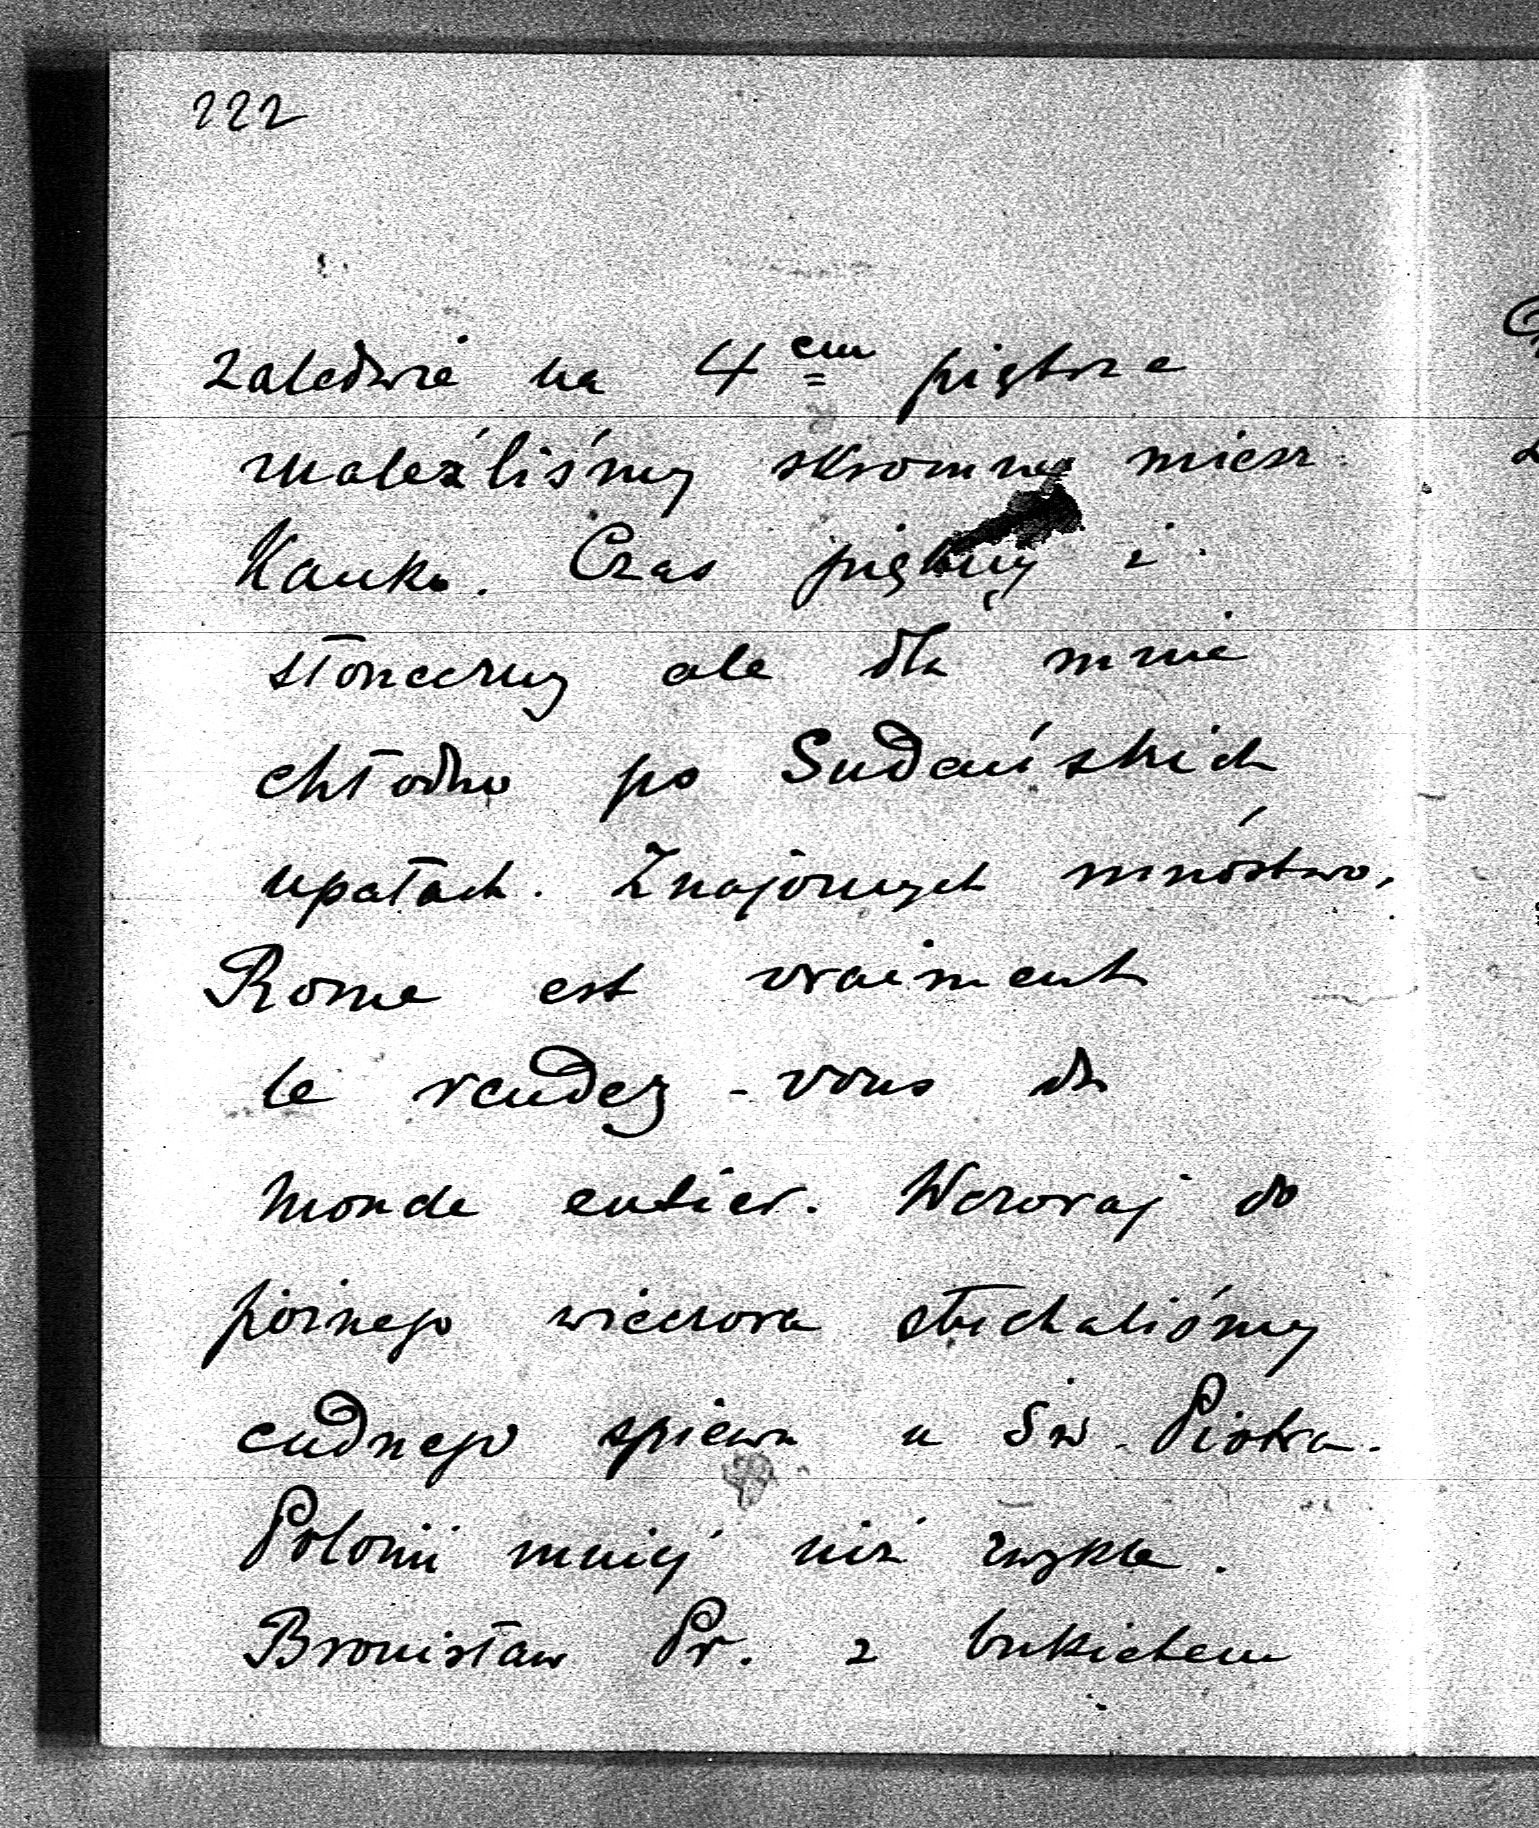 222
zaledwie na 4em piętrze
znaleźliśmy skromne miesz
kanko. Czas piękny i
słoneczny ale dla mnie
chłodno po Sudańskich
upałach. Znajomych mnóstwo,
Rome est vraiment
le rendez-vous du
monde entier. Wczoraj do
póżnego wieczora słuchaliśmy
cudnego spiewu u Św. Piotra.
Polonii mniej niż zwykle.
Bronisław Pr. z bukietem